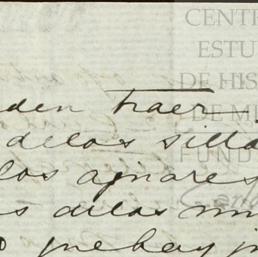 CENTR
ESTU
DE HIS
DE M
FUND
den traer
delas silla
los ajuares
s delas mu
o que hay